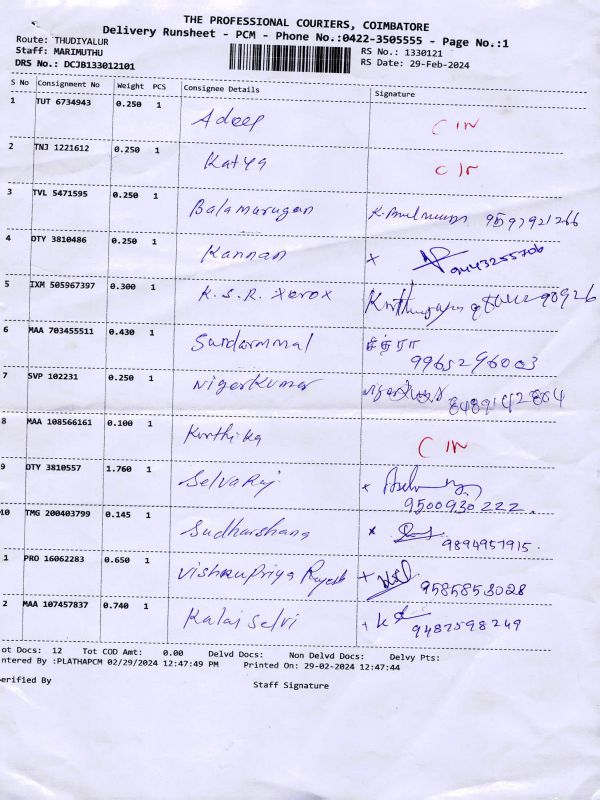 THE PROFESSIONAL COURIERS, COIMBATORE
Delivery Runsheet - PCM - Phone No.:0422-3505555 - Page No.:1
Route: THUDIYALUR
Staff: MARIMUTHU
RS No.: 1330121
DRS No.: DCJB133012101
RS Date: 29-Feb-2024
S No Consignment No Weight PCS Consignee Details Signature
1 TUT 6734943 0.250 1 Adeep CIN
2 TNJ 1221612 0.250 1 Katya CIN
3 TVL 5471595 0.250 1 Balamurugan
4 OTY 3810486 0.250 1 Kannan x 9443255706
5 IXM 505967397 0.300 1 K.S.R. Xerox
6 MAA 703455511 0.430 1 Sundarammal சித்ரா
9965296003
7 SVP 102231 0.250 1
8 MAA 108566161 0.100 1 Kirthika CIN
9 OTY 3810557 1.760 1 Selvaraj x
9500930222.
10 TMG 200403799 0.145 1 Sudharshana x
9894957915.
1 PRO 16062283 0.650 1 Vishnupriya Rajesh x 9585853028
2 MAA 107457837 0.740 1 Kalai selvi
9487598249
ot Docs: 12 Tot COD Amt: 0.00 Delvd Docs: Non Delvd Docs: Delvy Pts:
ntered By :PLATHAPCM 02/29/2024 12:47:49 PM Printed On: 29-02-2024 12:47:44
erified By Staff Signature